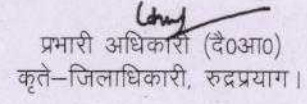 प्रभारी अधिकारी (दै0आ0)
कृते–जिलाधिकारी, रुद्रप्रयाग।